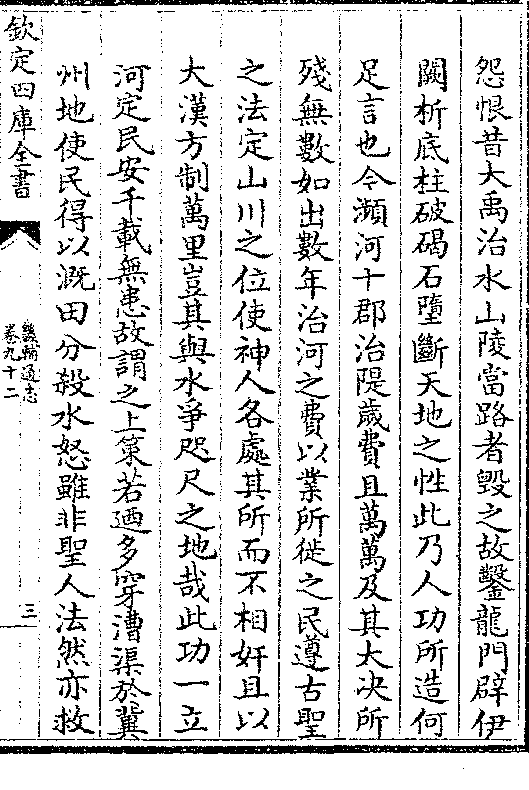 怨恨昔大禹治水山陵當路者毀之故鑿龍門辟伊
闕析底柱破碣石墮斷天地之性此乃人功所造何
足言也今瀕河十郡治隄歲費且萬萬及其大決所
殘無數如出數年治河之費以業所徙之民遵古聖
之法定山川之位使神人各處其所而不相奸且以
大漢方制萬里豈其與水爭咫尺之地哉此功一立
河定民安千載無患故謂之上策若廼多穿漕渠於冀
州地使民得以溉田分殺水怒雖非聖人法然亦救
欽定四庫全書
畿輔通志
卷九十二
三